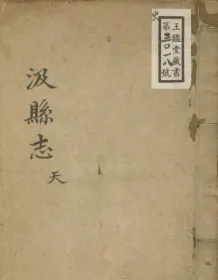 史
玉鑑堂藏書
第三〇一八號
汲縣志
天